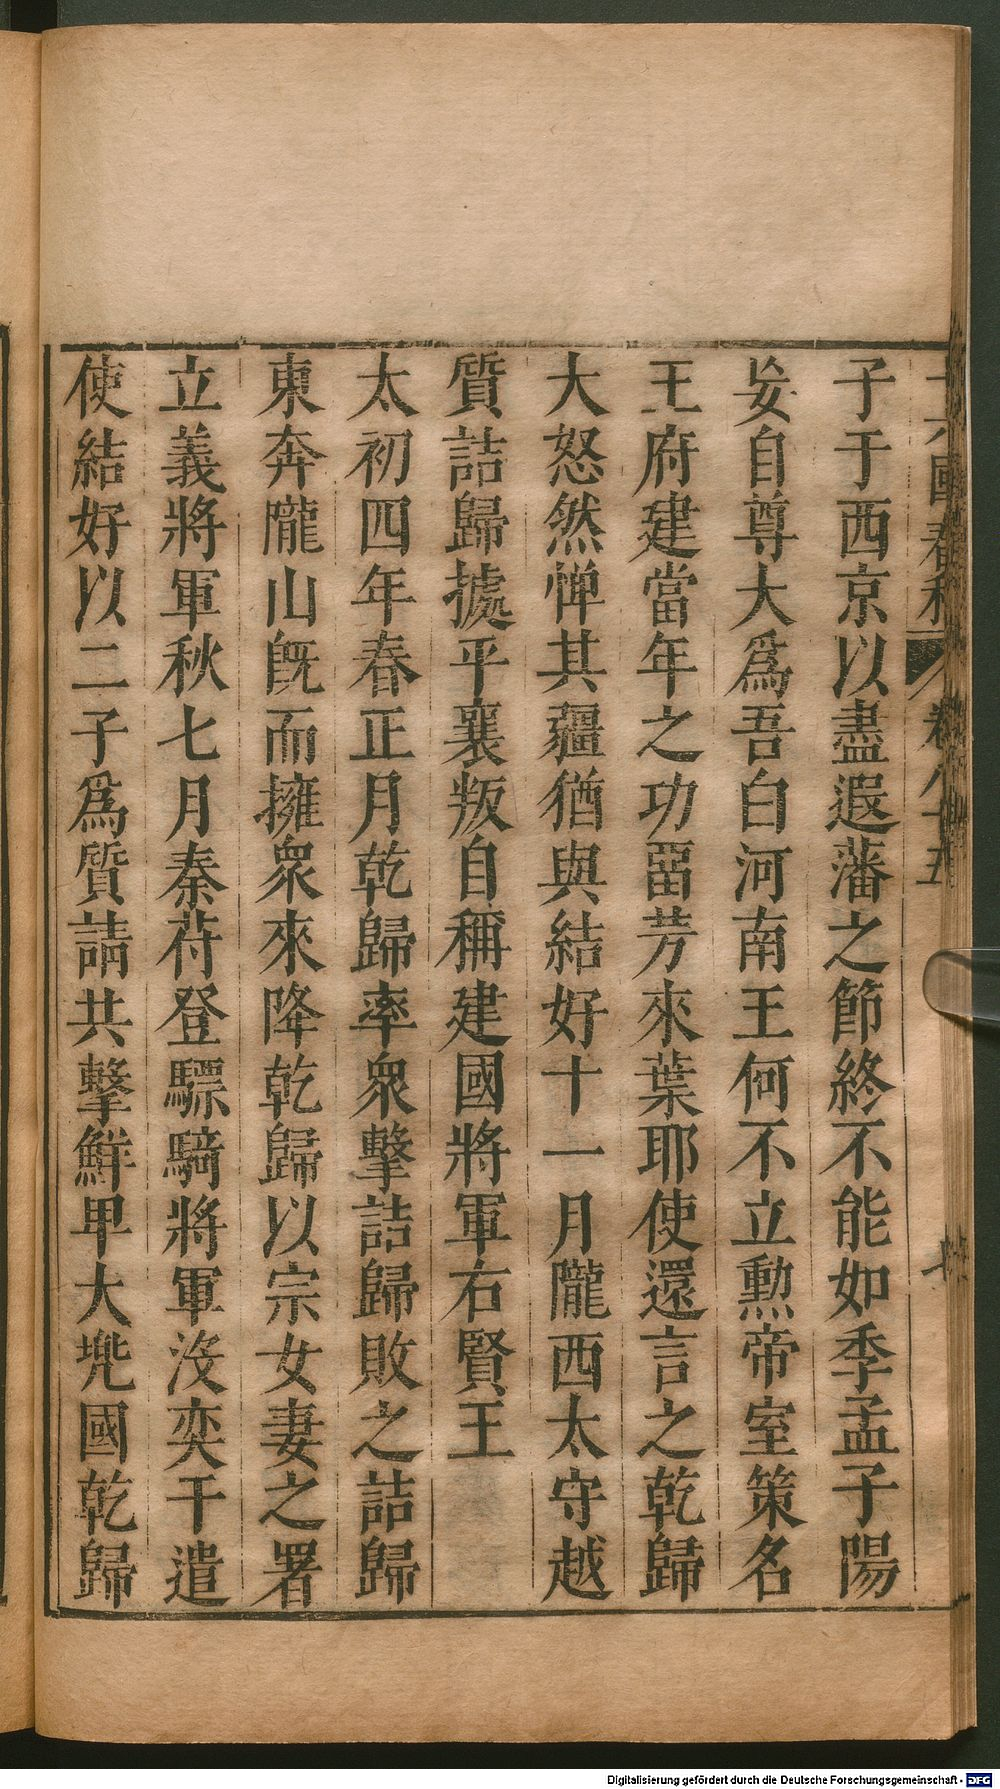 子于西京以盡遐藩之節終不能如季孟子陽
妄自尊大爲吾白河南王何不立勲帝室策名
王府建當年之功畱芳來葉耶使還言之乾歸
大怒然憚其疆猶與結好十一月隴西太守越
質詰歸據平襄叛自稱建國將軍右賢王
太初四年春正月乾歸率衆擊詰歸敗之詰歸
東奔隴山旣而擁衆來降乾歸以宗女妻之署
立義將軍秋七月秦苻登驃騎將軍沒奕干遣
使結好以二子爲質請共擊鮮卑大兠國乾歸
Digitalisierung gefördert durch die Deutsche Forschungsgemeinschaft - DFG